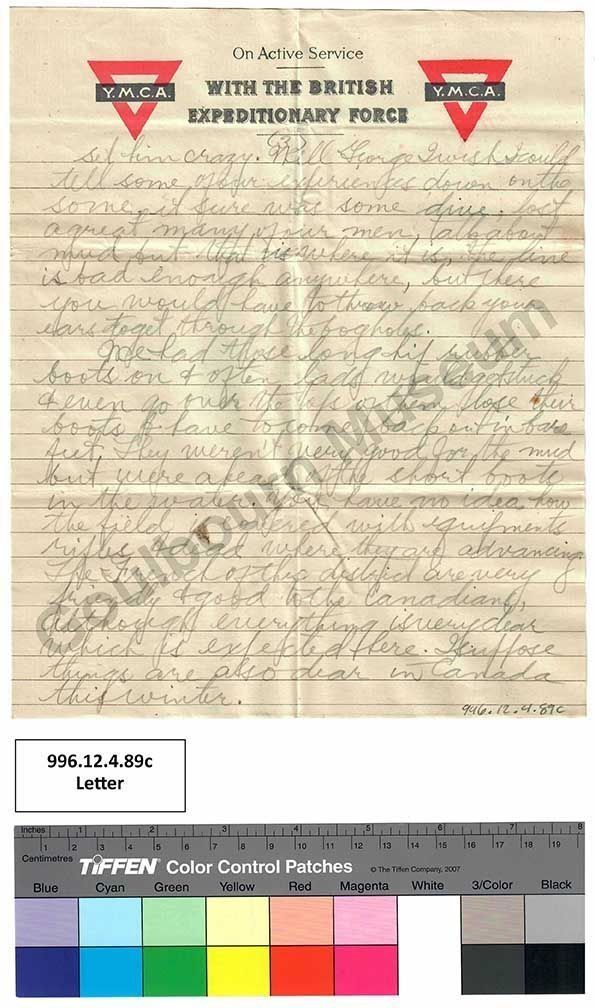 On Active Service
Y.M.C.A.
WITH THE BRITISH
EXPEDITIONARY FORCE
Y.M.C.A.
(3)
set him crazy. Well George I wish I could
tell some of our experiences down on the
Some, it sure was some dive, lost
a great many of our men, talk about
mud but that is where it is, the line
is bad enough anywhere, but there
you would have to throw back your
ears to get through the bogholes.
We had those long hip rubber
boots on & often lads would get stuck
& even go over the tops on them, lose their
boots & have to come back out in bare
feet. They weren't very good for the mud
but were ahead of the short boots
in the water. You have no idea how
the field is covered with equipments
rifles & dead where they are advancing.
The French of this district are very
friendly & good to the Canadians,
although everything is very dear
which is expected here. I suppose
things are also dear in Canada
this winter.
996.12.4.89c
Goulbourn Museum
996.12.4.89c
Letter
Inches 1 2 3 4 5 6 7 8
Centimetres 1 2 3 4 5 6 7 8 9 10 11 12 13 14 15 16 17 18 19
TIFFEN Color Control Patches
© The Tiffen Company, 2007
Blue Cyan Green Yellow Red Magenta White 3/Color Black